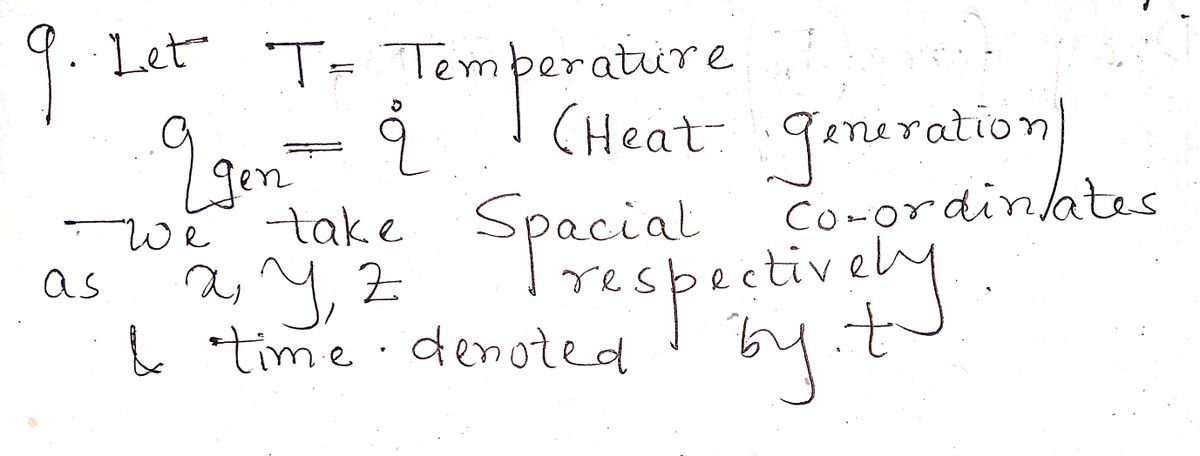 9. Let T = Temperature
q gen = q̊ (Heat generation)
- we take Spacial co-ordinates
as x, y, z respectively.
& time denoted by t